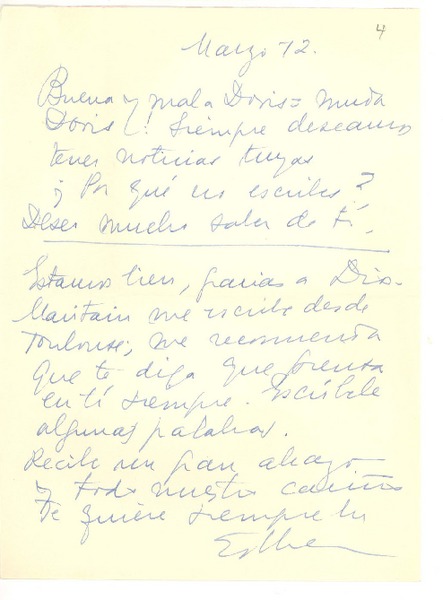 4
Marzo 12.
Buena y mala Doris = muda
Doris! Siempre deseamos
tener noticias tuyas
¿Por qué no escribes?
Deseo mucho saber de ti.
Estamos bien, gracias a Dios.
Maritain me escribe desde
Toulouse; me recomienda
que te diga que piensa
en tí siempre. Escríbele
algunas palabras.
Recibe un gran abrazo
y todo nuestro cariño
Te quiere siempre tu
Esther